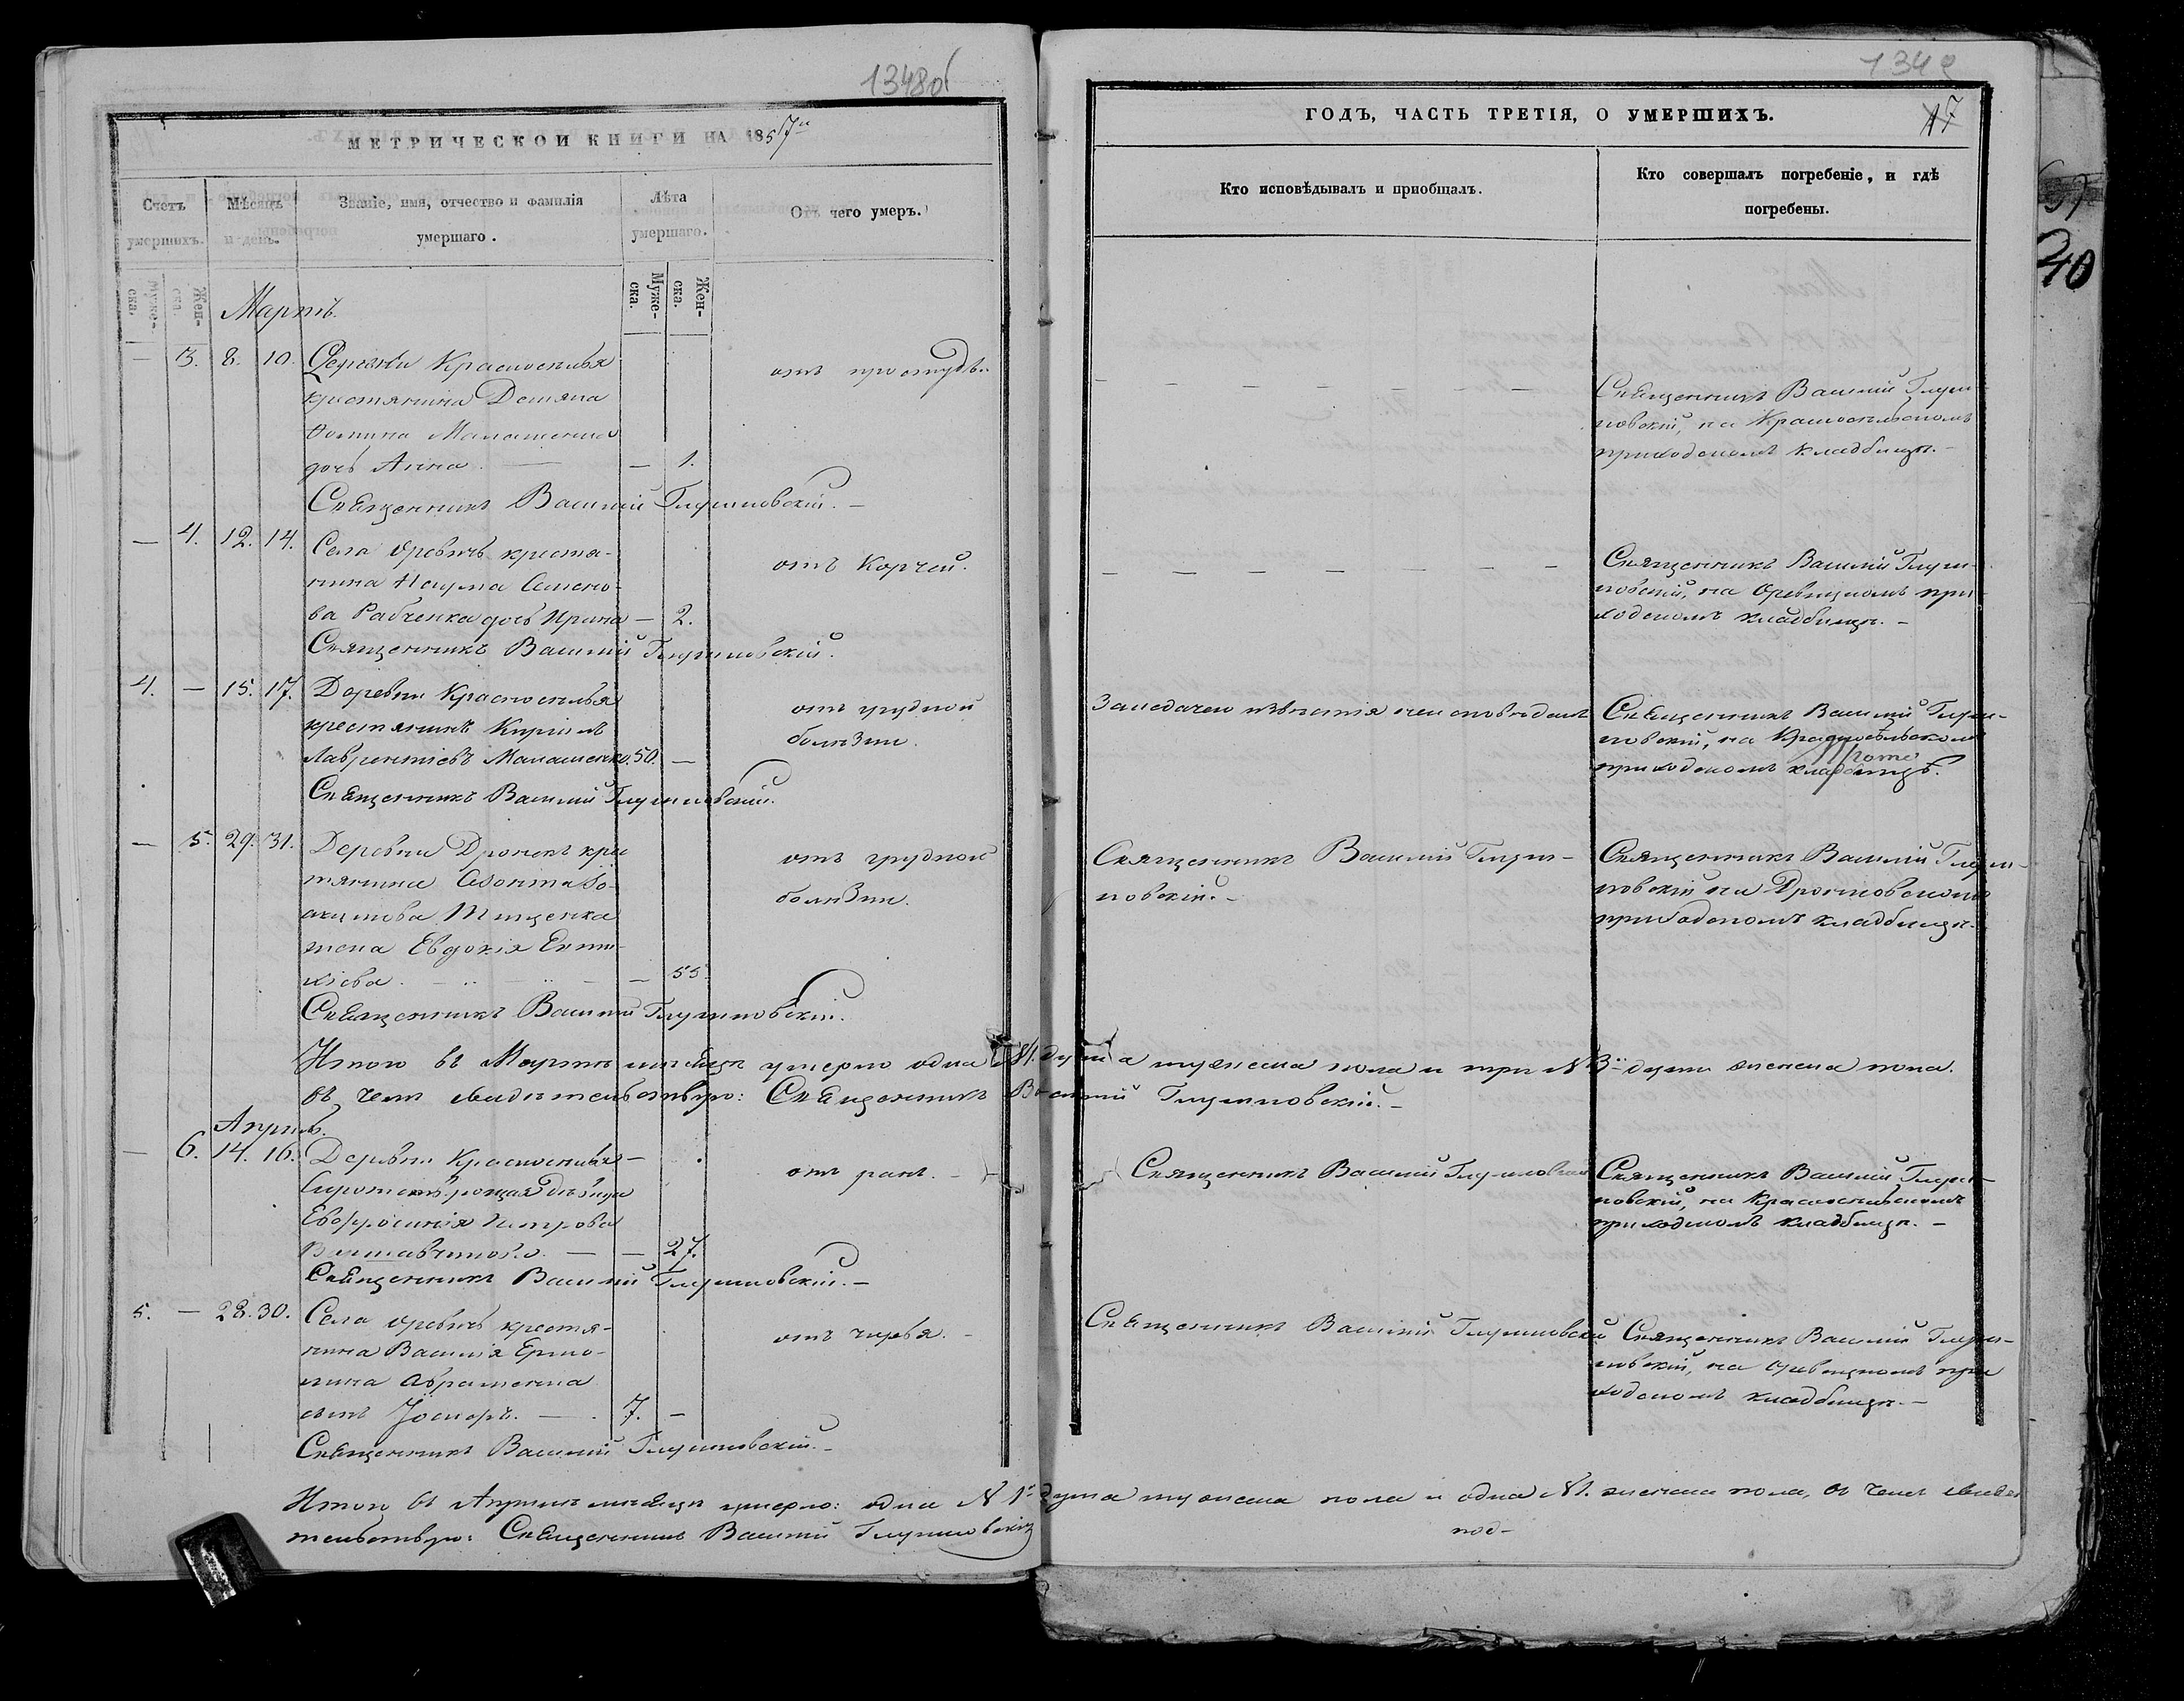 1348об
МЕТРИЧЕСКОЙ КНИГИ НА 1857й
Счетъ умершихъ.
Мѣсяцъ и день.
Званіе, имя, отчество и фамилія умершаго.
Лѣта умершаго.
Отъ чего умеръ.
Муже-ска.
Жен-ска.
Муже-ска.
Жен-ска.
Мартъ.
— 3. 8. 10. Деревни Красноселья
крестянина Демяна
Фомина Малашенка
дочь Анна — — 1.
отъ простуды
Священникъ Василій Глушновскій.—
— 4. 12. 14. Села Оревичь крестя-
нина Наума Семено-
ва Рабченка дочь Ирина — 2.
отъ Корчей.
Священникъ Василій Глушновскій.
4. — 15. 17. Деревни Красноселья
крестянинъ Кирилъ
Лаврентіевъ Малашенко. 50. —
отъ грудной
болѣзни.
Священникъ Василій Глушновскій.
— 5. 29. 31. Деревни Дронекъ крес
тянина
Тищенка
жена Евдокія
55.
отъ грудной
болѣзни.
Священникъ Василій Глушновскій.
Итого въ Мартѣ мѣсяцѣ умерло одна №1. душа мужеска пола и три №3 души женска пола.
въ чемъ свидѣтельствую: Священникъ Василій Глушновскій.—
Апрѣль.
— 6. 14. 16. Деревни Красноселья —
дѣвица
Евфросинія Петрова
— — 27.
отъ ранъ. —
Священникъ Василій Глушновскій.—
5. — 28. 30. Села Оревичь крестя-
нина Василія Ермо-
лина Абраменка
сынъ — . 7. —
отъ чирья. —
Священникъ Василій Глушновскій.—
Итого въ Апрѣлѣ мѣсяцѣ умерло: одна №1 душа мужеска пола и одна №1. женска пола, въ чемъ свидѣ
тельствую: Священникъ Василій Глушновскій
1349
ГОДЪ, ЧАСТЬ ТРЕТІЯ, О УМЕРШИХЪ.
17
Кто исповѣдывалъ и пріобщалъ.
Кто совершалъ погребеніе, и гдѣ погребены.
— — — — — — — —
Священникъ Василій Глуш-
новскій, на Красносельскомъ
приходскомъ кладбищѣ.—
— — — — — — — —
Священникъ Василій Глуш-
новскій, на Оревицкомъ при-
ходскомъ кладбищѣ.—
Священникъ Василій Глуш-
новскій, на Красносельскомъ
приходскомъ кладбищѣ.
Священникъ Василій Глуш-
новскій.—
Священникъ Василій Глуш-
новскій на Дроньковскомъ
приходскомъ кладбищѣ.
Священникъ Василій Глушновскій
Священникъ Василій Глуш-
новскій, на Красносельскомъ
приходскомъ кладбищѣ.—
Священникъ Василій Глушновскій
Священникъ Василій Глуш-
новскій, на Оревицкомъ при
ходскомъ кладбищѣ.—
под-
40